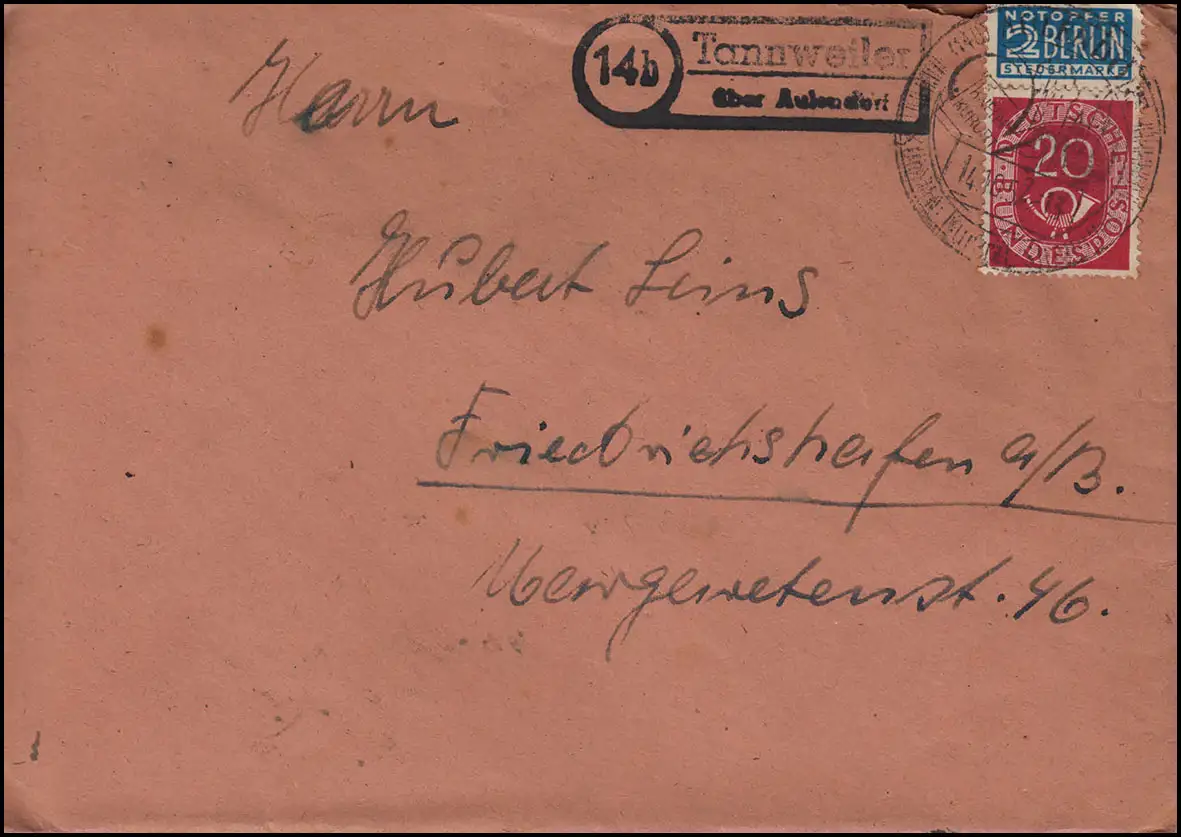 14b
Tannweiler
über Aulendorf
NOTOPFER
2 BERLIN
STEUERMARKE
DEUTSCHE
20
BUNDESPOST
Herrn
Hubert Leins
Friedrichshafen a/B.
46.